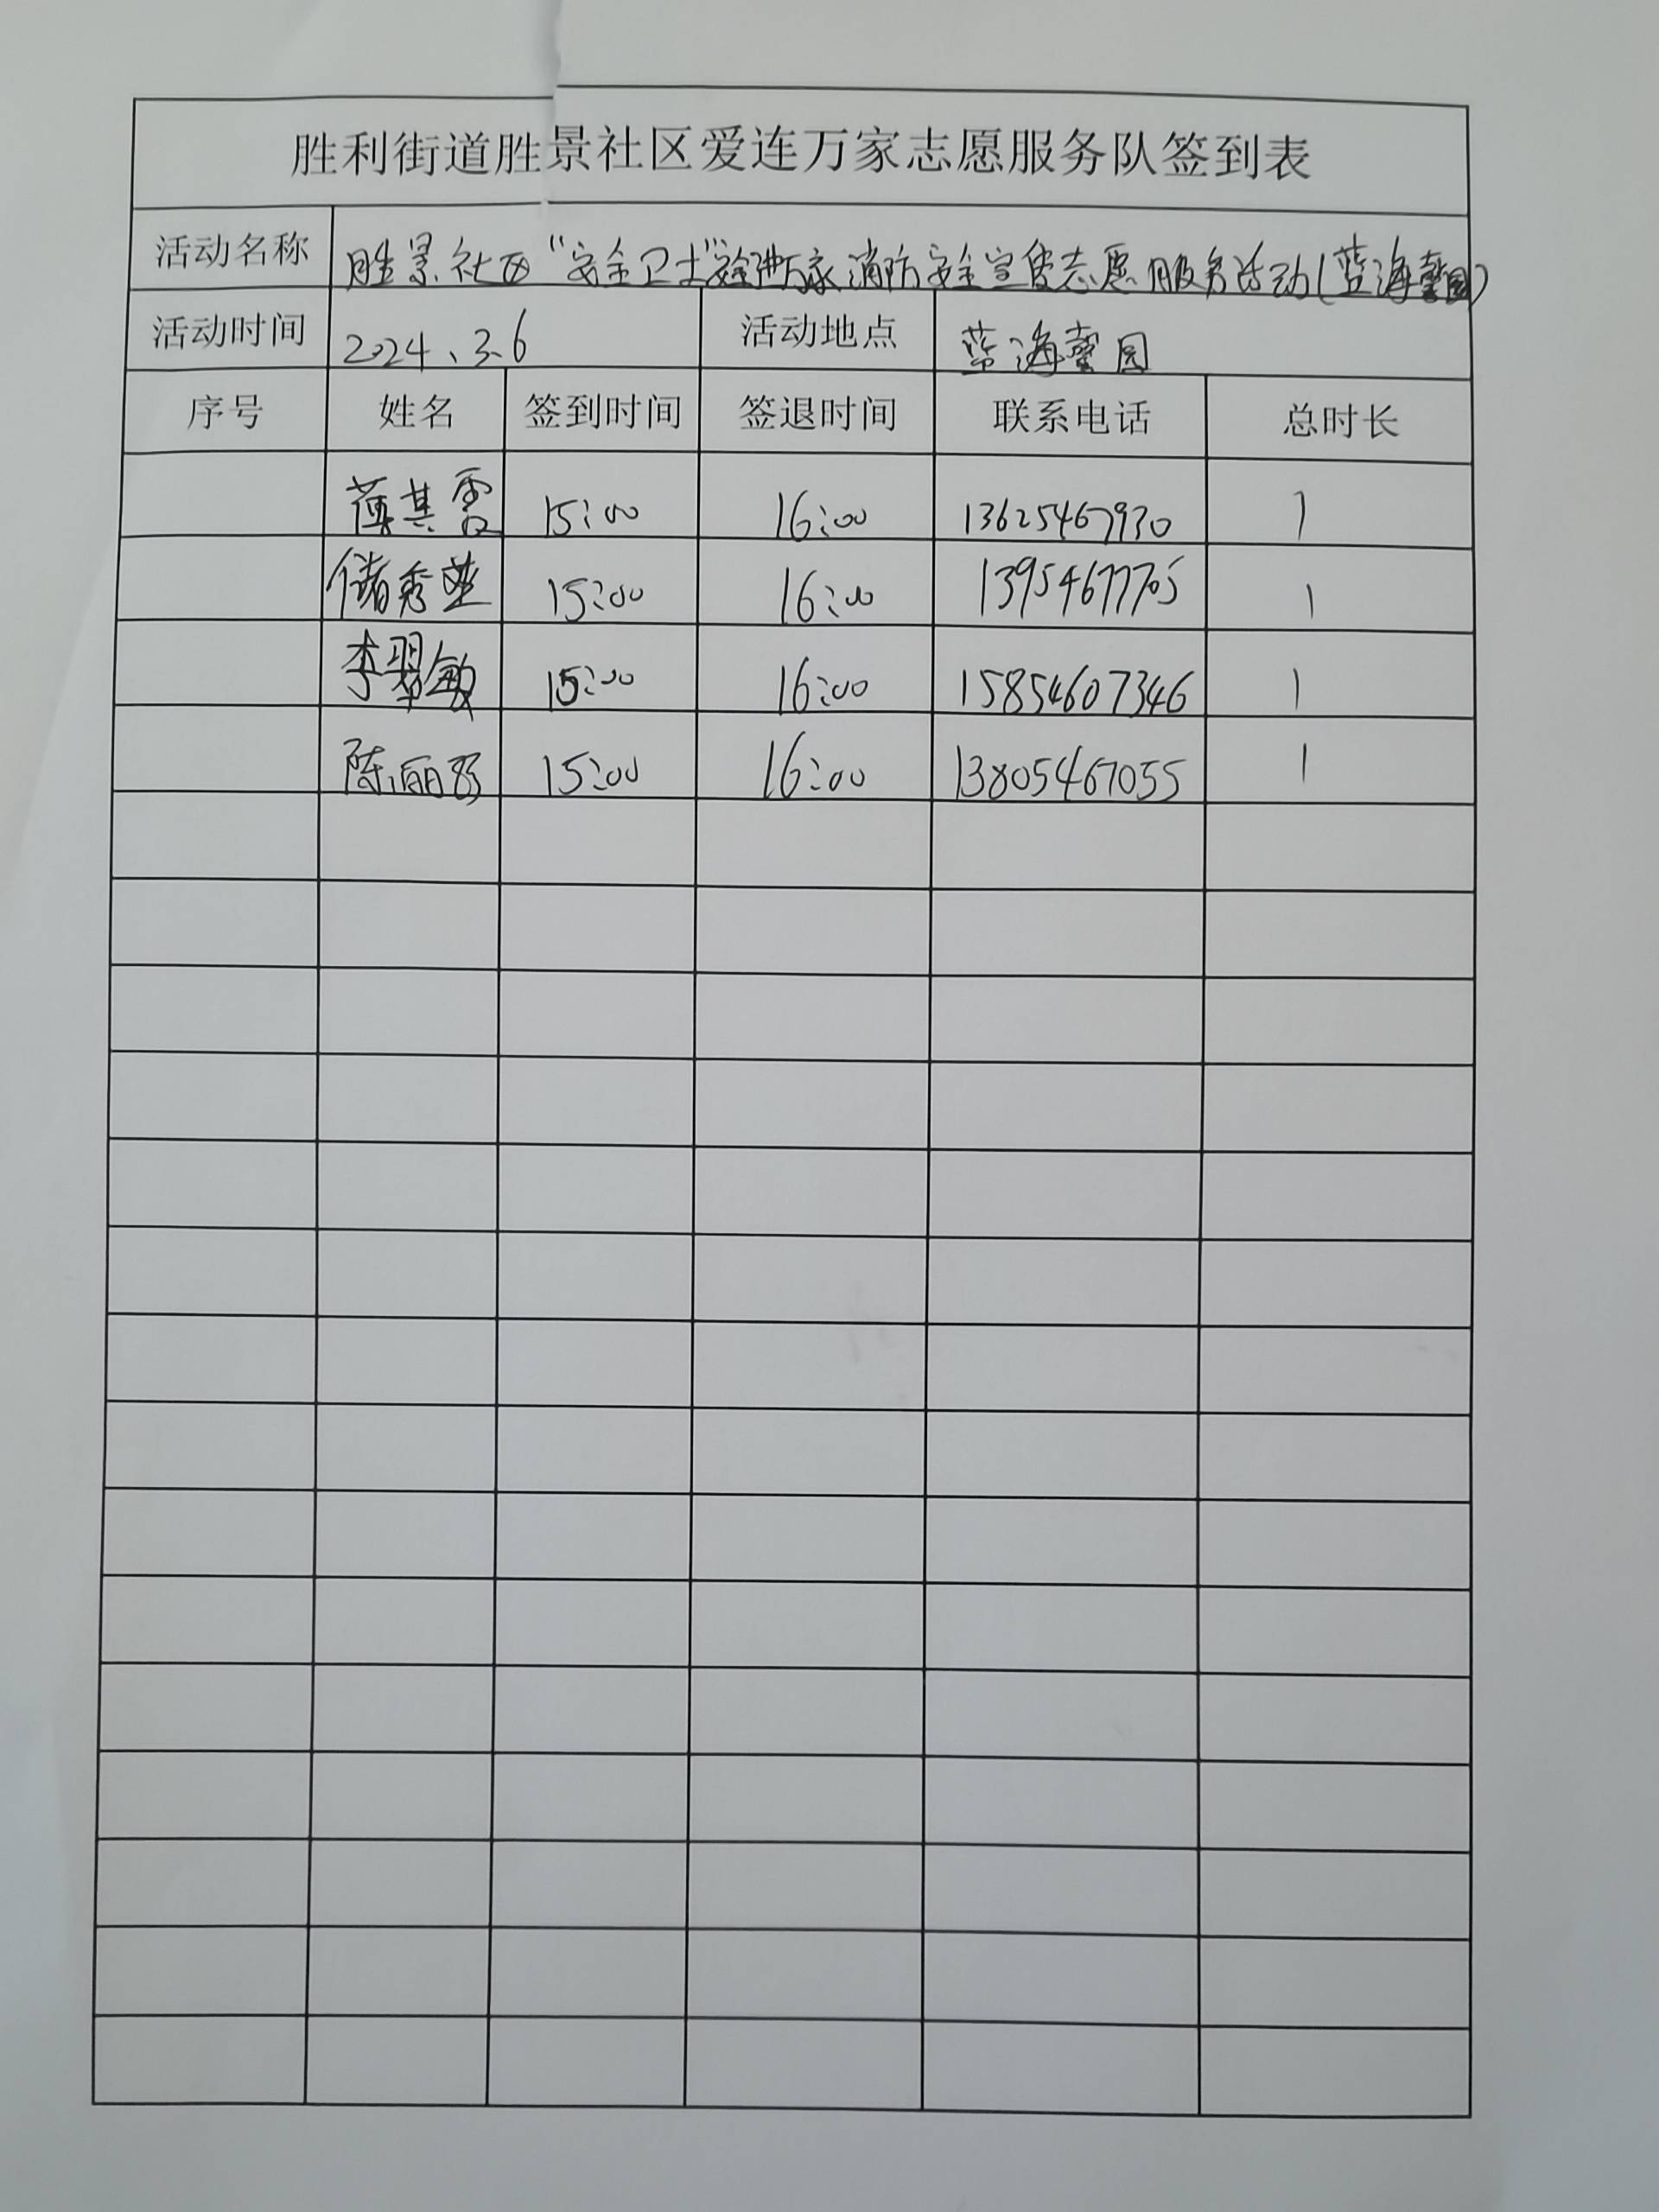 胜利街道胜景社区爱连万家志愿服务队签到表
活动名称 胜景社区“安全卫士”安全进万家消防安全宣传志愿服务活动(蓝海馨园)
活动时间 2024、3.6 活动地点 蓝海馨园
序号 姓名 签到时间 签退时间 联系电话 总时长
薄其雷 15:00 16:00 13625467930 1
储秀 15:00 16:00 13954677705 1
李翠敏 15:00 16:00 15854607346 1
陈丽 15:00 16:00 13805467055 1